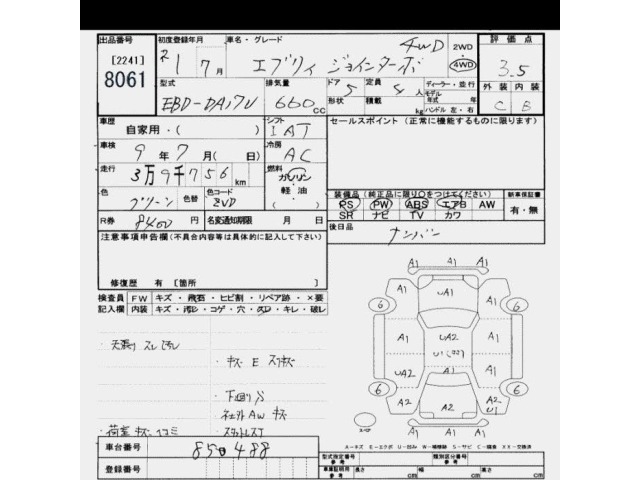 出品番号 初度登録年月 車名・グレード 評価点
[2241] 8061
R1 7月 エブリィ ジョインターボ 4WD 2WD 4WD 3.5
型式 排気量 ドア 定員 ディーラー・並行 外装 内装
EBD-DA17V 660cc 5 4人 モデル年式 年 C B
形状 積載 kg ハンドル 左・右
車歴 自家用・( ) シフト IAT セールスポイント (正常に機能するものに限ります)
車検 9年7月(日) 冷房 AC
走行 3万9千756km 燃料 ガソリン 軽・油
色 グリーン 色替 色コード ZVD 装備品(純正品に限り○をつけてください) 新車保証書
PS PW ABS エアB AW 有・無
SR ナビ TV カワ
R券 8400円 名変通知期限 月 日 後日品 ナンバン
注意事項申告欄(不具合内容等は具体的に記入して下さい)
修復歴 有 [箇所 ]
検査員 FW キズ・飛石・ヒビ割・リペア跡・×要
記入欄 内装 キズ・汚レ・コゲ・穴・欠ロ・キレ・破レ
・天張り スレ 汚レ
・キズ・E スリキズ
・下廻り サ
・荷室 キズ・イコミ
A1 A1 A1
A1 UA1 A1
6 6
A1 UA2 A1
UA2 A1
6 6
A2 A2 A2 U1
A1 A1 A1
スペア
A-キズ E-エクボ U-凹み W-補修跡 S-サビ C-腐食 XX-交換済
車台番号 850488
登録番号
型式指定番号 参考 類別区分番号 参考
車庫証明用 参考 長さ cm 幅 cm 高さ cm